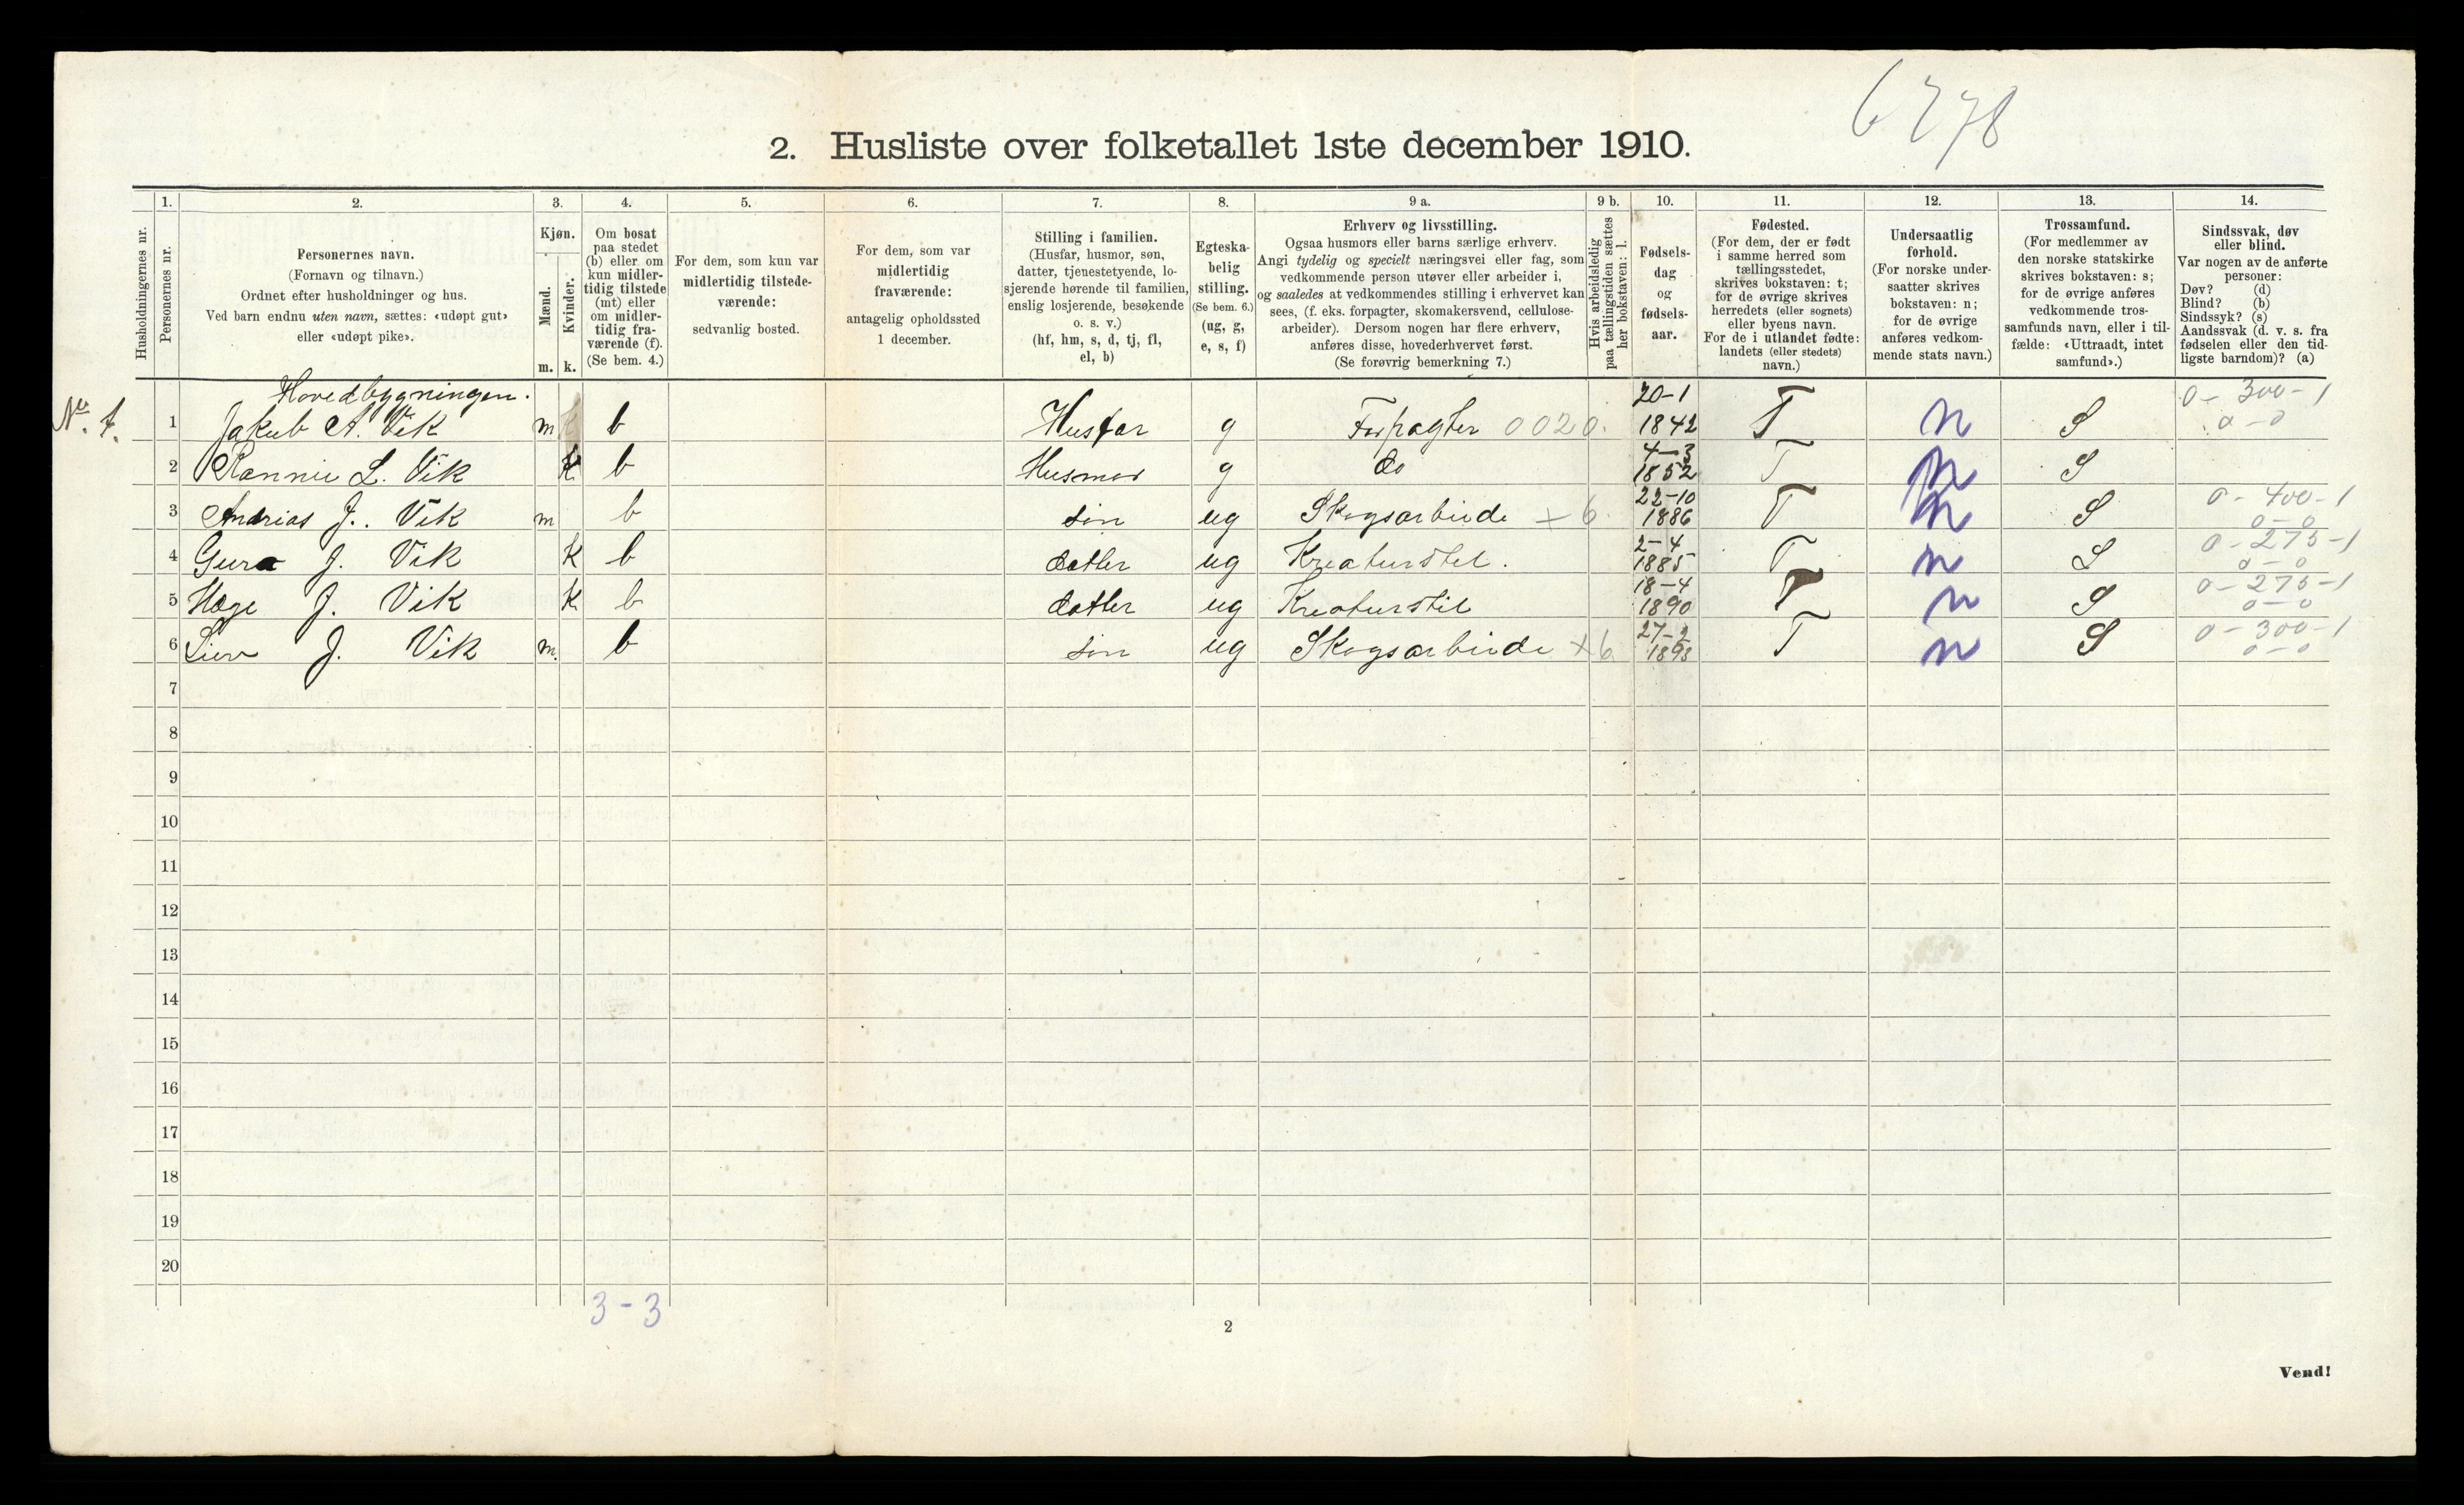 6778
2. Husliste over folketallet 1ste december 1910.
Husholdningernes nr.
1.
Personernes nr.
2.
Personernes navn.
(Fornavn og tilnavn.)
Ordnet efter husholdninger og hus.
Ved barn endnu uten navn, sættes: «udøpt gut»
eller «udøpt pike».
3.
Kjøn.
Mænd.
Kvinder.
m. k.
4.
Om bosat
paa stedet
(b) eller om
kun midler-
tidig tilstede
(mt) eller
om midler-
tidig fra-
værende (f).
(Se bem. 4.)
5.
For dem, som kun var
midlertidig tilstede-
værende:
sedvanlig bosted.
6.
For dem, som var
midlertidig
fraværende:
antagelig opholdssted
1 december.
7.
Stilling i familien.
(Husfar, husmor, søn,
datter, tjenestetyende, lo-
sjerende hørende til familien,
enslig losjerende, besøkende
o. s. v.)
(hf, hm, s, d, tj, fl,
el, b)
8.
Egteska-
belig
stilling.
(Se bem. 6.)
(ug, g,
e, s, f)
9 a.
Erhverv og livsstilling.
Ogsaa husmors eller barns særlige erhverv.
Angi tydelig og specielt næringsvei eller fag, som
vedkommende person utøver eller arbeider i,
og saaledes at vedkommendes stilling i erhvervet kan
sees, (f. eks. forpagter, skomakersvend, cellulose-
arbeider). Dersom nogen har flere erhverv,
anføres disse, hovederhvervet først.
(Se forøvrig bemerkning 7.)
9 b.
Hvis arbeidsledig
paa tællingstiden sættes
her bokstaven: l.
10.
Fødsels-
dag
og
fødsels-
aar.
11.
Fødested.
(For dem, der er født
i samme herred som
tællingsstedet,
skrives bokstaven: t;
for de øvrige skrives
herredets (eller sognets)
eller byens navn.
For de i utlandet fødte:
landets (eller stedets)
navn.)
12.
Undersaatlig
forhold.
(For norske under-
saatter skrives
bokstaven: n;
for de øvrige
anføres vedkom-
mende stats navn.)
13.
Trossamfund.
(For medlemmer av
den norske statskirke
skrives bokstaven: s;
for de øvrige anføres
vedkommende tros-
samfunds navn, eller i til-
fælde: «Uttraadt, intet
samfund».)
14.
Sindssvak, døv
eller blind.
Var nogen av de anførte
personer:
Døv? (d)
Blind? (b)
Sindssyk? (s)
Aandssvak (d. v. s. fra
fødselen eller den tid-
ligste barndom)? (a)
Hovedbygningen.
No. 1. 1 Jakub A. Vik m b Husfar g Forpagter 0020. 20-1 1842 T n S 0-300-1 0-0
2 Rannei L. Vik K b Husmor g do 4-3 1852 T n S
3 Andrias J. Vik m b søn ug Skogsarbeide x6. 22-10 1886 T n S 0-400-1 0-0
4 Guro J. Vik K b datter ug Kreaturstel. 2-4 1885 T n S 0-275-1 0-0
5 Hæge J. Vik K b datter ug Kreaturstel 18-4 1890 T n S 0-275-1 0-0
6 J. Vik m. b søn ug Skogsarbeide x6 27-2 1893 T n S 0-300-1 0-0
7
8
9
10
11
12
13
14
15
16
17
18
19
20
3-3
2
Vend!